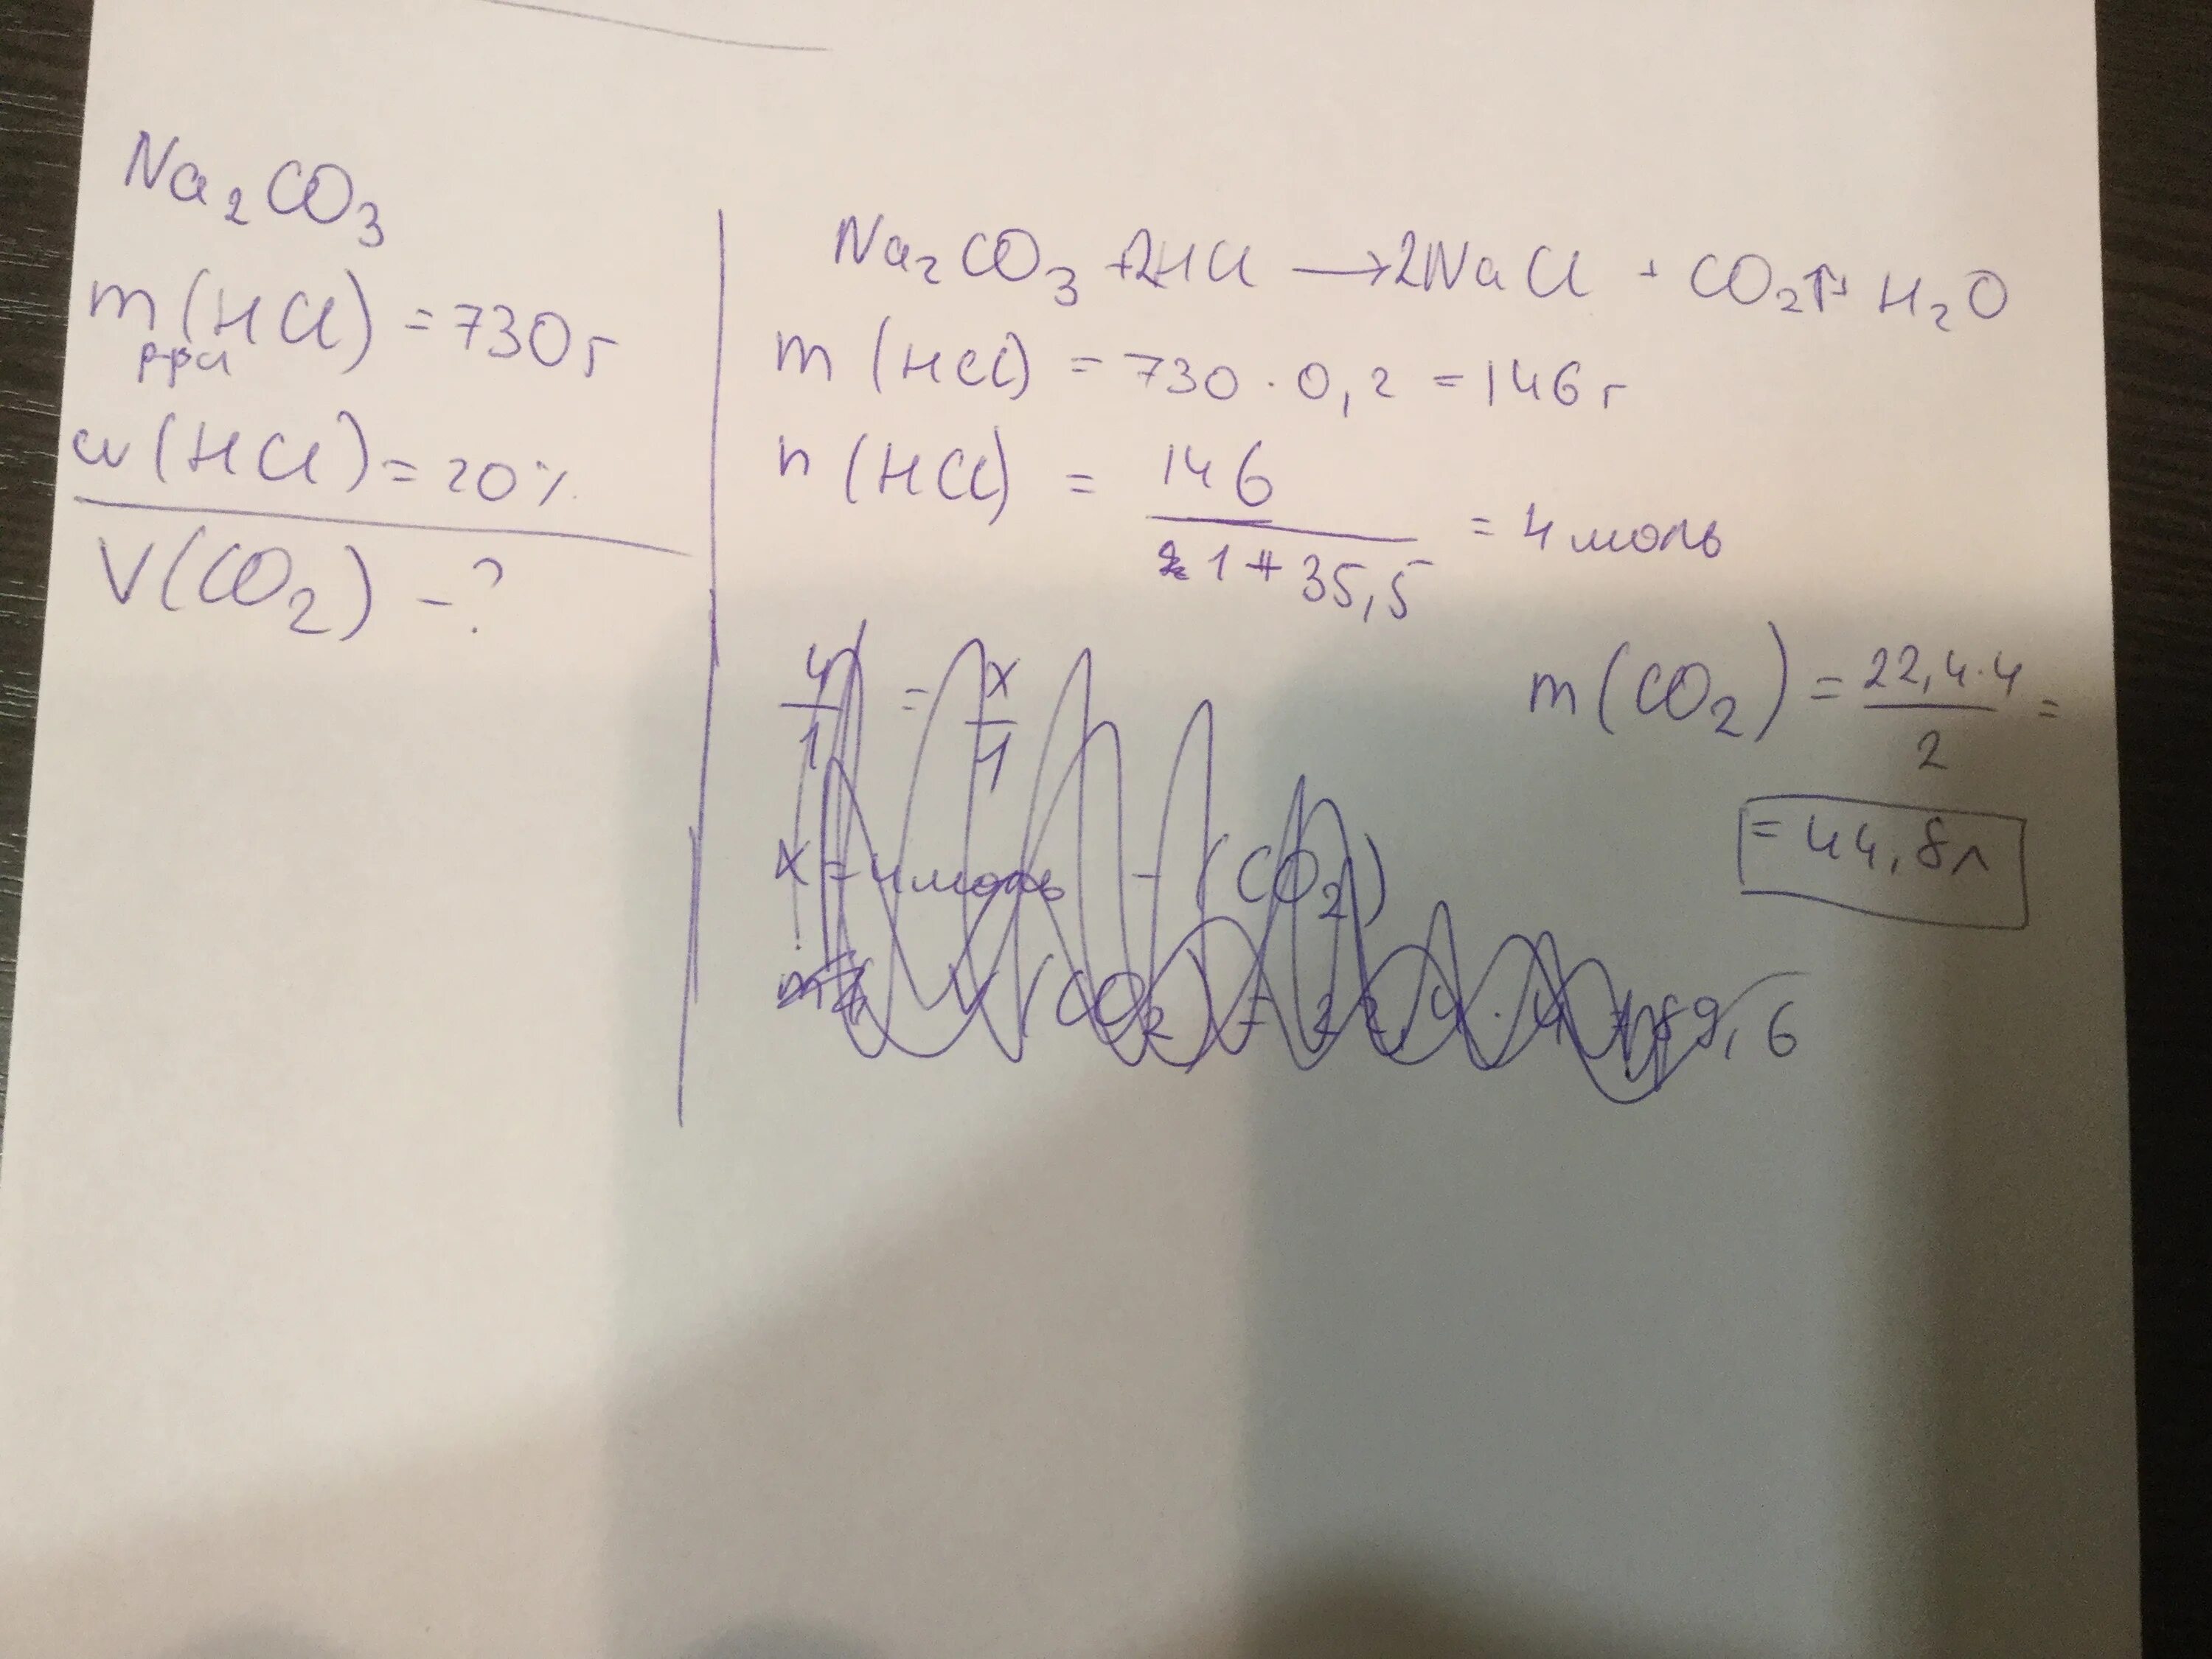 Na₂CO₃
m р-ра (HCl) = 730 г
w (HCl) = 20%
V(CO₂) – ?
Na₂CO₃ + 2HCl → 2NaCl + CO₂↑ + H₂O
m (HCl) = 730 · 0,2 = 146 г
n (HCl) = 146 / 1 + 35,5 = 4 моль
4/1 = x/1
x = 4 моль – (CO₂)
V (CO₂) = 22,4 · 4 = 89,6
m (CO₂) = 22,4 · 4 / 2 =
= 44,8 л